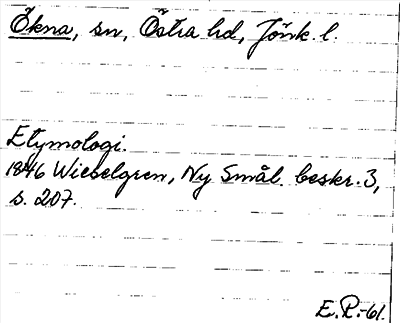 Ökna, sn, Östra hd, Jönk. l.
Etymologi.
1846 Wieselgren, Ny Smål. beskr. 3,
s. 207.
E.P.-61.